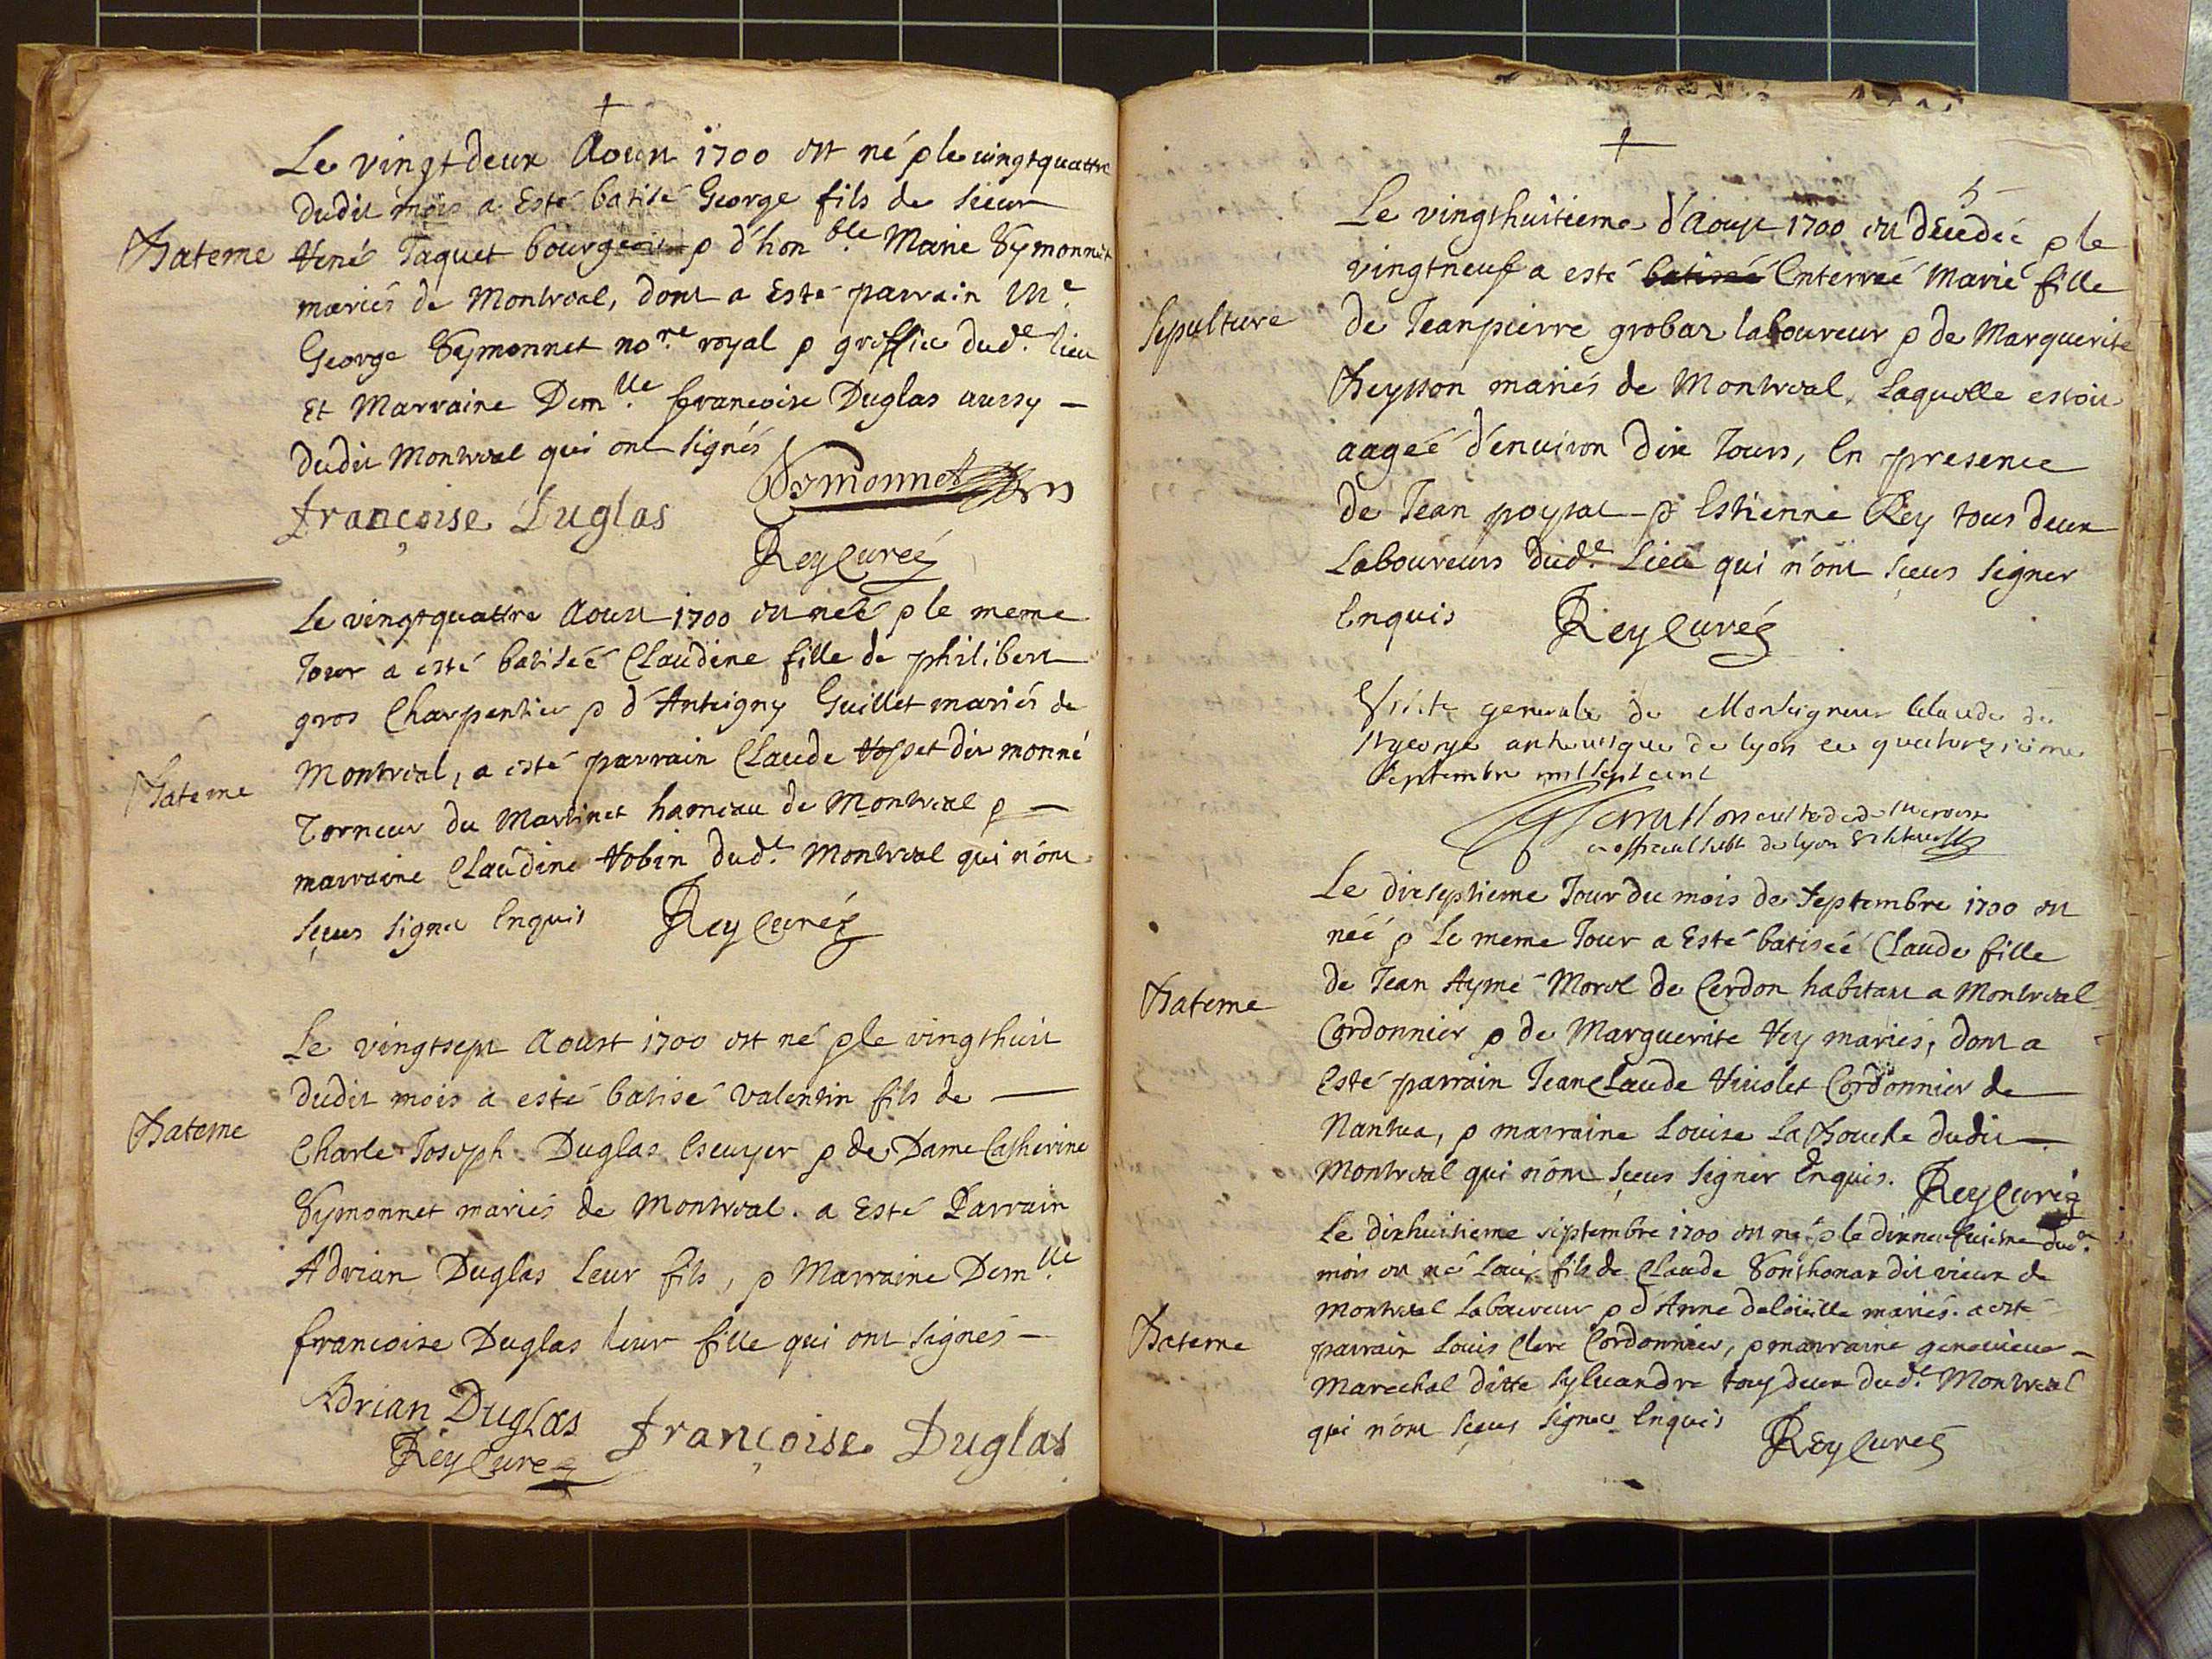 Le vingt deux Aoust 1700 est né & le vingtquattre
dudit mois a Esté batisé George fils de sieur
Bateme
René Jaquet bourgeois & d'hon.ble Marie Symonnet
mariés de Montreal, dont a Esté parrain Me.
George Symonnet no.re royal & greffier dud.t lieu
Et Marraine Dem.lle francoise Duglas aussy
dudit Montreal qui ont signés
Symonnet
Françoise Duglas
Rey Curé
Le vingtquattre Aoust 1700 est neé & le meme
Jour a esté batiseé Claudine fille de philibert
gros Charpentier & d'Anteigny Guillet mariés de
Bateme
Montreal, a esté parrain Claude dit monné
Torneur du Martinet hameau de Montreal &
marraine Claudine Robin dud.t Montreal qui n'ont
sçeus signer Enquis Rey Curé
Le vingtsept Aoust 1700 est né & le vingthuit
Bateme
dudit mois a esté batisé valentin fils de
Charle Joseph Duglas Escuyer & de Dame Catherine
Symonnet mariés de Montreal. a Esté Parrain
Adrian Duglas Leur fils, & Marraine Dem.lle
francoise Duglas leur fille qui ont signés
Adrian Duglas
Françoise Duglas
Rey Curé
5
Le vingthuitieme d'Aoust 1700 est décedée & le
vingtneuf a esté batiseé Enterreé Marie fille
Sepulture
de Jeanpierre grobaz laboureur & de Marguerite
Beysson mariés de Montreal, Laquelle estoit
aagéé d'environ dix Jours, En presence
de Jean & Estienne Rey tous deux
Laboureurs dud.t Lieu qui n'ont sçeus signer
Enquis Rey Curé
Visite generale de Monseigneur Claude de
St george archevesque de lyon ce quatorzieme
Septembre mil sept cent
Le dixseptieme Jour du mois de Septembre 1700 est
néé & Le meme Jour a Esté batiséé Claude fille
Bateme
de Jean Aymé Morel de Cerdon habitant a Montreal
Cordonnier & de Marguerite Rey mariés, dont a
Esté parrain Jean Claude Cordonnier de
Nantua, & marraine Louise La Bouche dudit
Montreal qui n'ont sçeus signer Enquis. Rey Curé
Le dixhuitieme septembre 1700 est né & le dixneufuieme dud.t
mois est né Louis fils de Claude dit vieux de
Montreal Laboureur & d'Anne mariés. a esté
Bateme
parrain Louis Clerc Cordonnier, & marraine genevieve
Marechal ditte Sylvandre tous deux dud.t Montreal
qui n'ont sçeus signer Enquis
Rey Curé